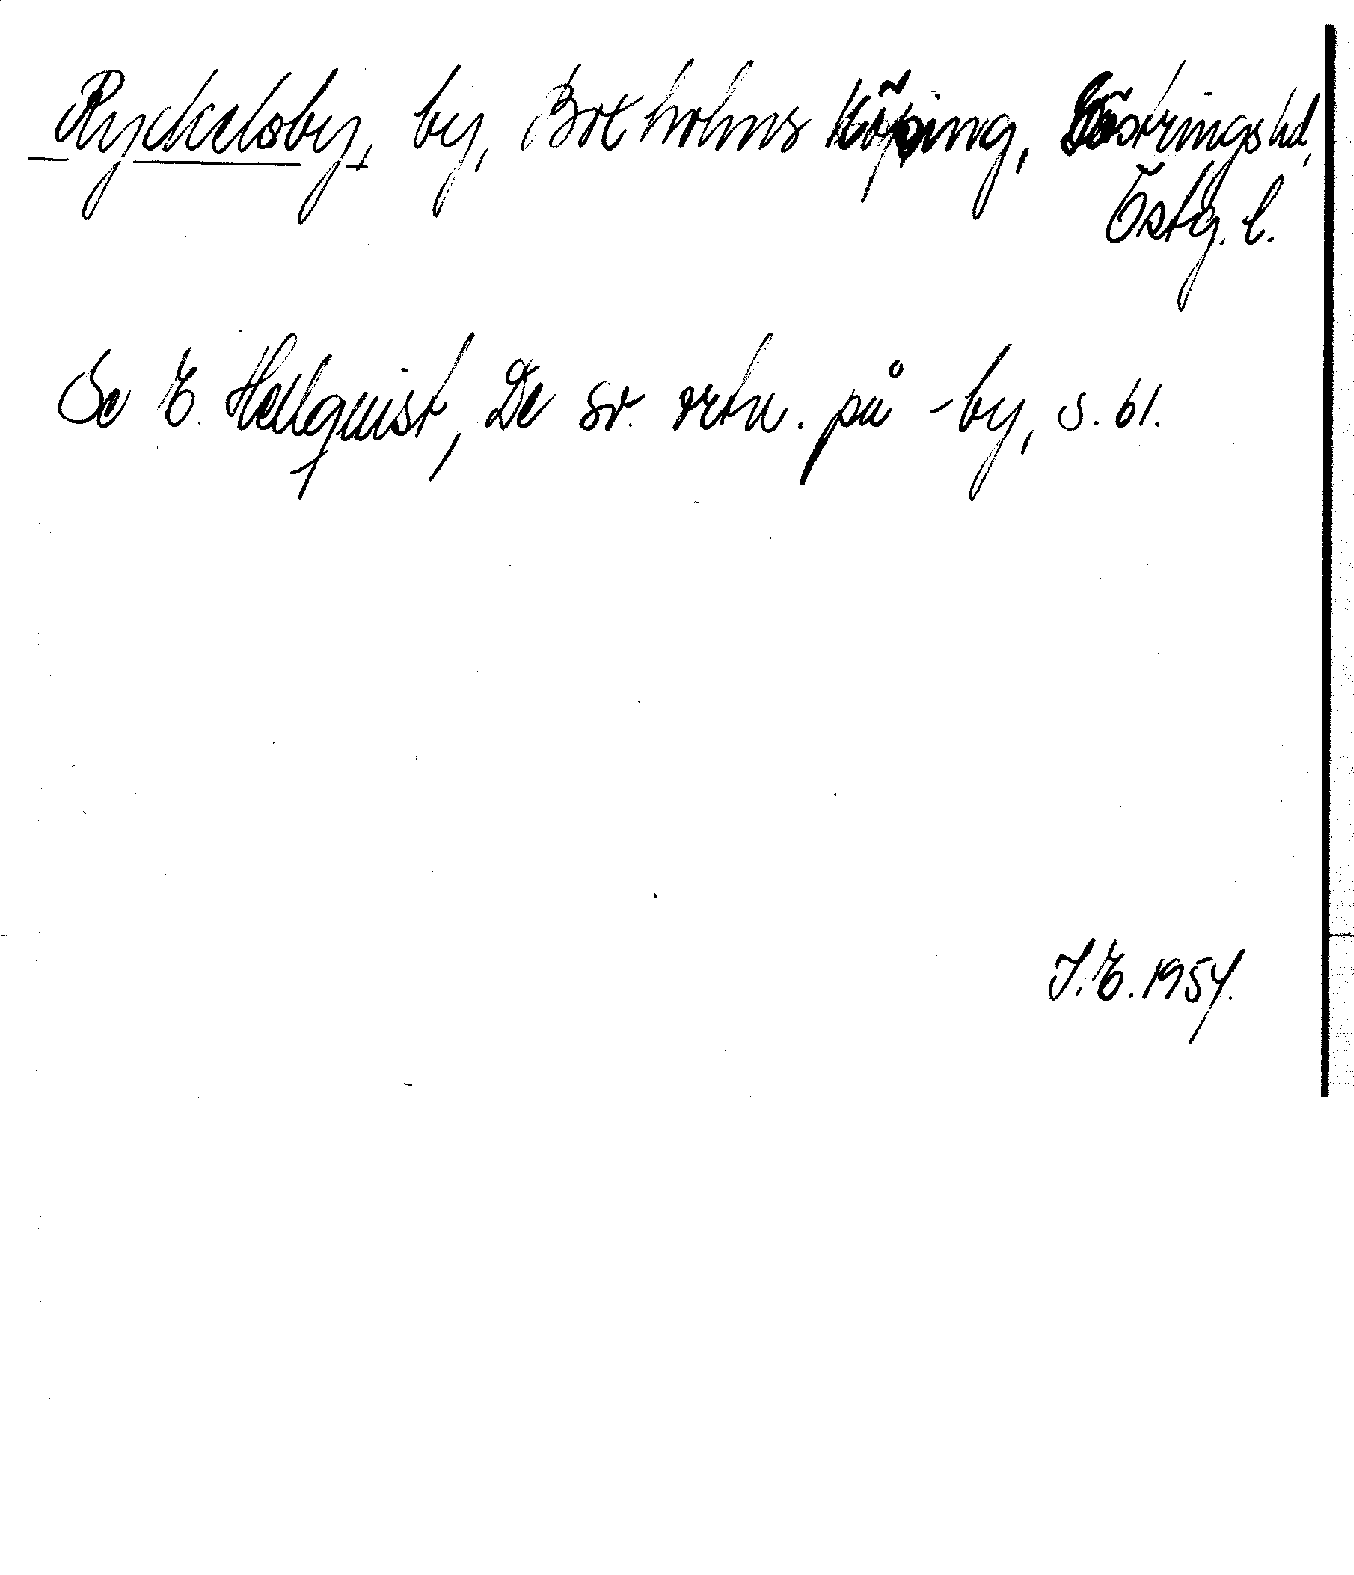 Ryckelsby, by, Boxholms köping, Göstrings hd,
Östg. l.
Se E. Hellquist, De sv. ortn. på -by, s. 61.
I. E. 1954.